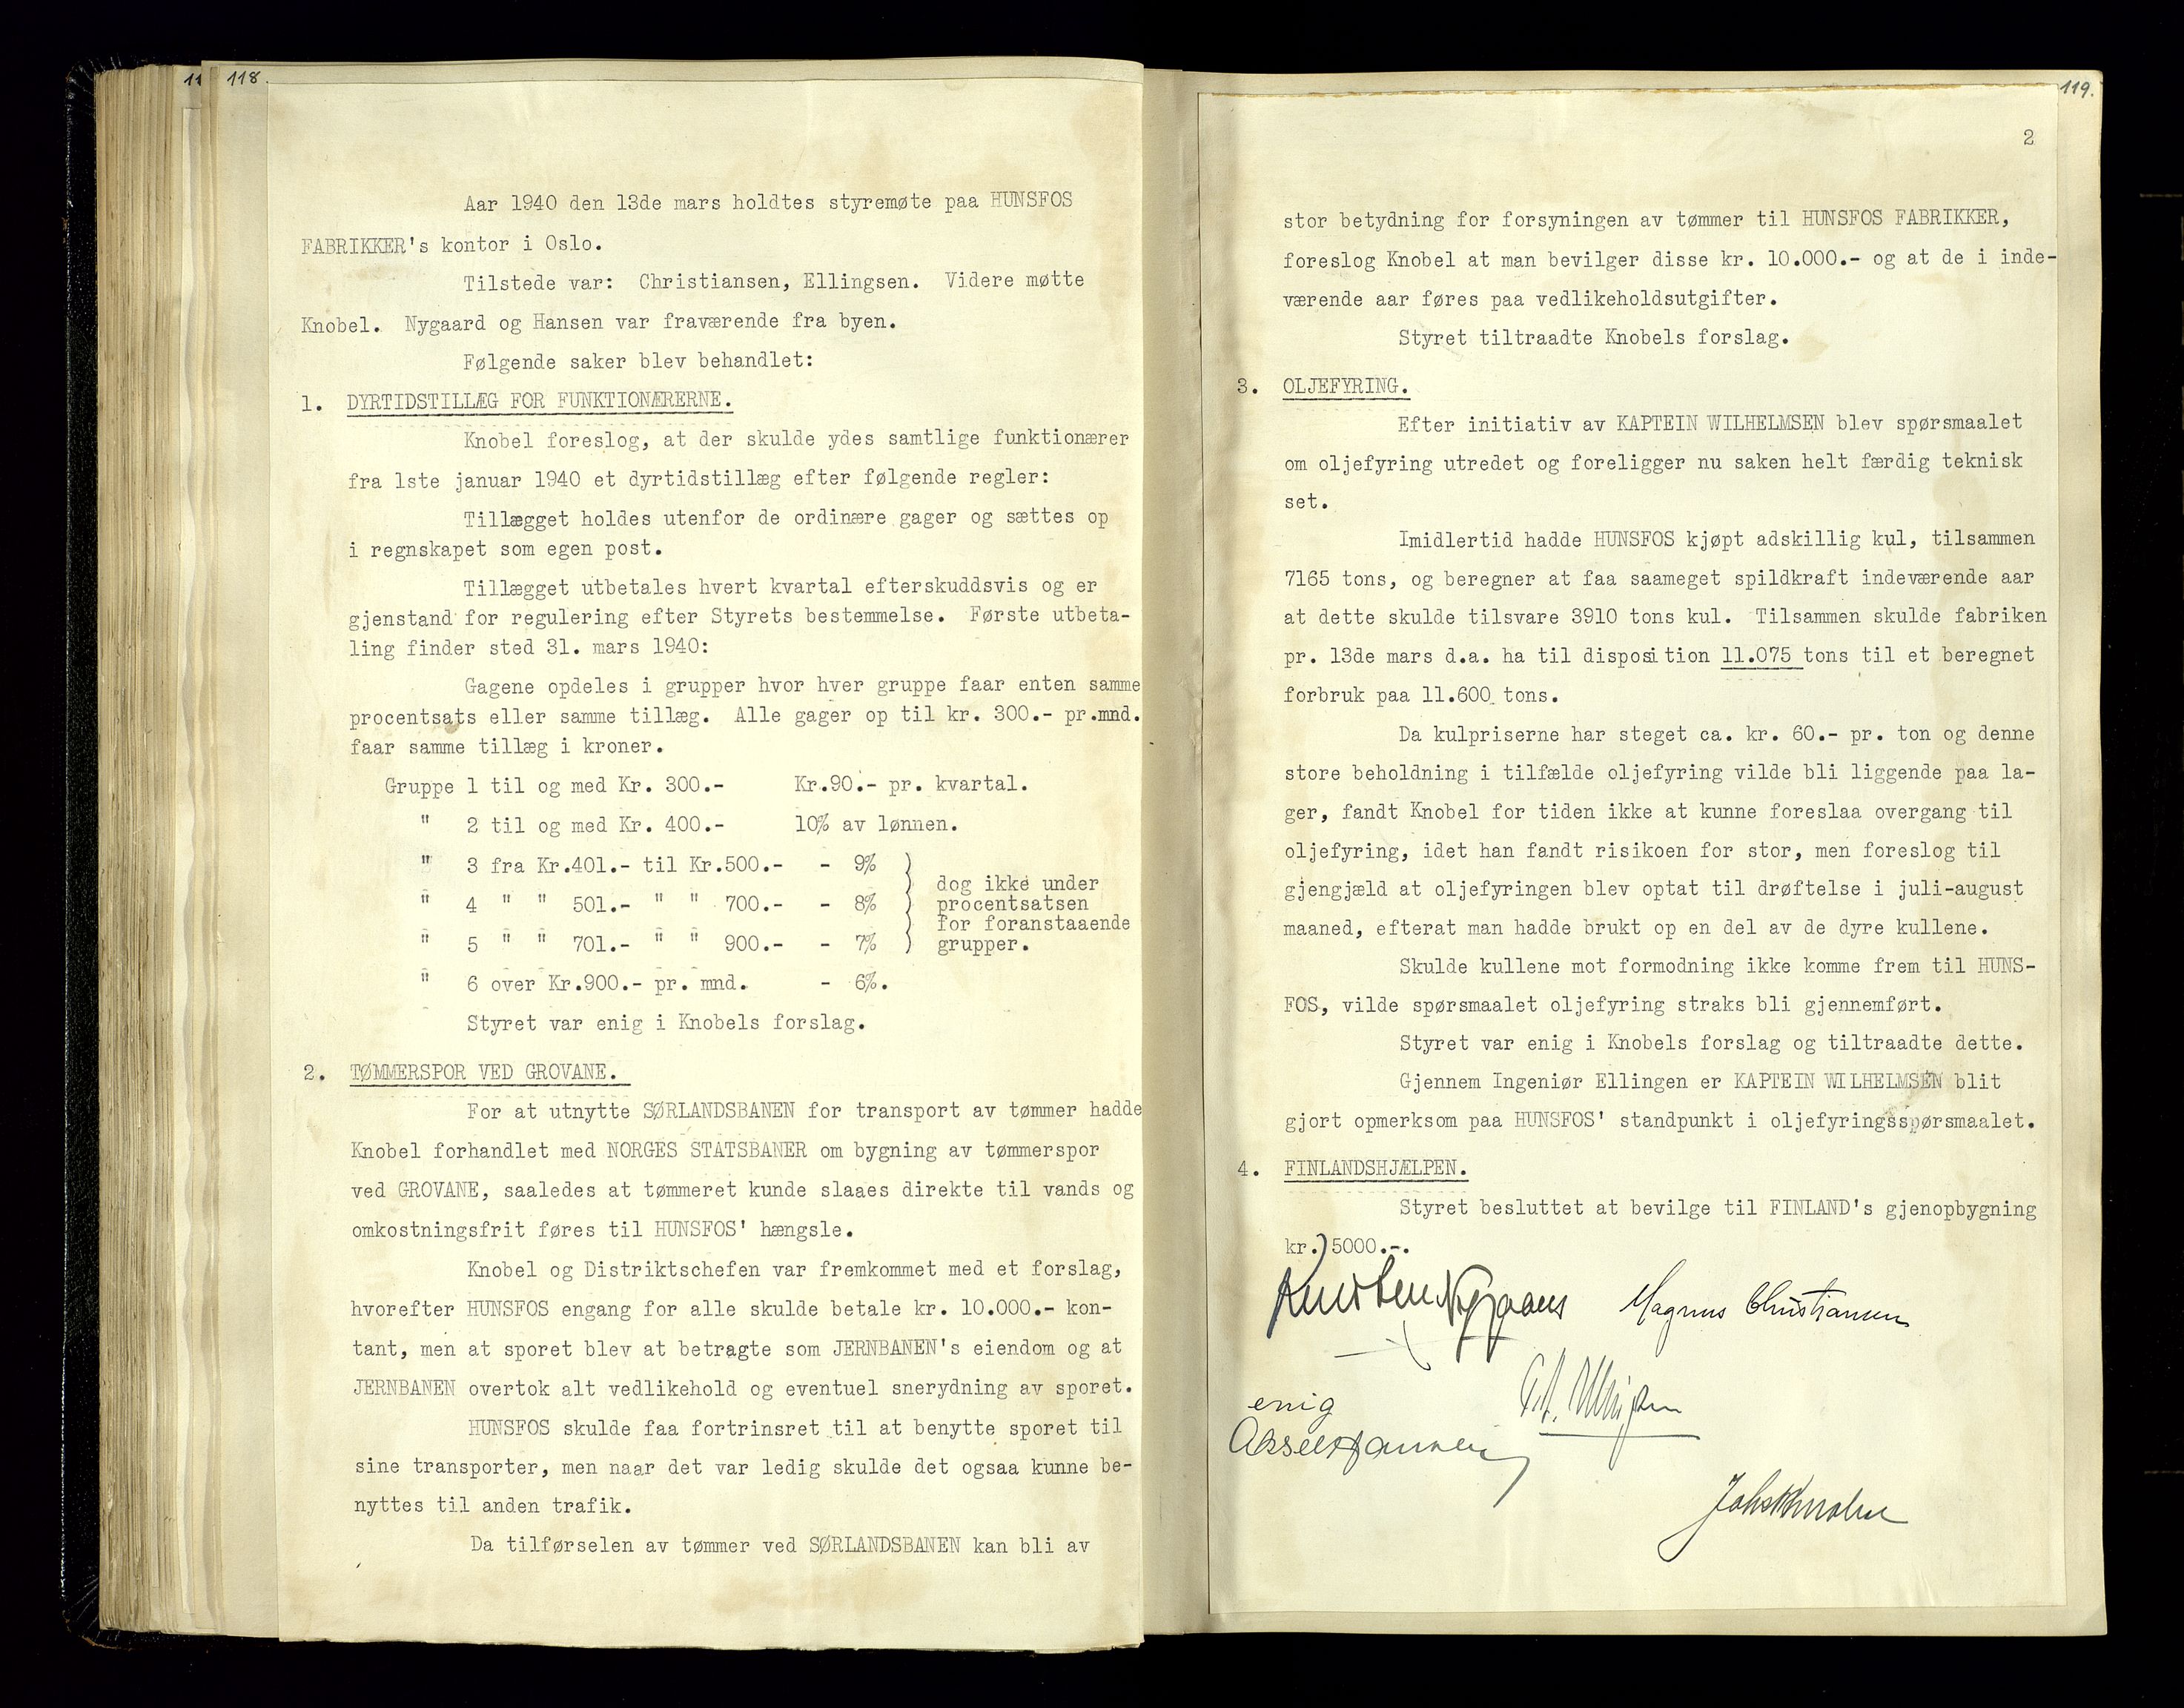 11
118.
Aar 1940 den 13de mars holdtes styremøte paa HUNSFOS
FABRIKKER's kontor i Oslo.
Tilstede var: Christiansen, Ellingsen. Videre møtte
Knobel. Nygaard og Hansen var fraværende fra byen.
Følgende saker blev behandlet:
1. DYRTIDSTILLÆG FOR FUNKTIONÆRERNE.
Knobel foreslog, at der skulde ydes samtlige funktionærer
fra 1ste januar 1940 et dyrtidstillæg efter følgende regler:
Tillægget holdes utenfor de ordinære gager og sættes op
i regnskapet som egen post.
Tillægget utbetales hvert kvartal efterskuddsvis og er
gjenstand for regulering efter Styrets bestemmelse. Første utbeta-
ling finder sted 31. mars 1940:
Gagene opdeles i grupper hvor hver gruppe faar enten samme
procentsats eller samme tillæg. Alle gager op til kr. 300.- pr.mnd.
faar samme tillæg i kroner.
Gruppe 1 til og med Kr. 300.- Kr.90.- pr. kvartal.
" 2 til og med Kr. 400.- 10% av lønnen.
" 3 fra Kr.401.- til Kr.500.- - 9% )
" 4 " " 501.- " " 700.- - 8% )
" 5 " " 701.- " " 900.- - 7% )
dog ikke under
procentsatsen
for foranstaaende
grupper.
" 6 over Kr.900.- pr. mnd. - 6%.
Styret var enig i Knobels forslag.
2. TØMMERSPOR VED GROVANE.
For at utnytte SØRLANDSBANEN for transport av tømmer hadde
Knobel forhandlet med NORGES STATSBANER om bygning av tømmerspor
ved GROVANE, saaledes at tømmeret kunde slaaes direkte til vands og
omkostningsfrit føres til HUNSFOS' hængsle.
Knobel og Distriktschefen var fremkommet med et forslag,
hvorefter HUNSFOS engang for alle skulde betale kr. 10.000.- kon-
tant, men at sporet blev at betragte som JERNBANEN's eiendom og at
JERNBANEN overtok alt vedlikehold og eventuel snerydning av sporet.
HUNSFOS skulde faa fortrinsret til at benytte sporet til
sine transporter, men naar det var ledig skulde det ogsaa kunne be-
nyttes til anden trafik.
Da tilførselen av tømmer ved SØRLANDSBANEN kan bli av
119.
2
stor betydning for forsyningen av tømmer til HUNSFOS FABRIKKER,
foreslog Knobel at man bevilger disse kr. 10.000.- og at de i inde-
værende aar føres paa vedlikeholdsutgifter.
Styret tiltraadte Knobels forslag.
3. OLJEFYRING.
Efter initiativ av KAPTEIN WILHELMSEN blev spørsmaalet
om oljefyring utredet og foreligger nu saken helt færdig teknisk
set.
Imidlertid hadde HUNSFOS kjøpt adskillig kul, tilsammen
7165 tons, og beregner at faa saameget spildkraft indeværende aar
at dette skulde tilsvare 3910 tons kul. Tilsammen skulde fabriken
pr. 13de mars d.a. ha til disposition 11.075 tons til et beregnet
forbruk paa 11.600 tons.
Da kulpriserne har steget ca. kr. 60.- pr. ton og denne
store beholdning i tilfælde oljefyring vilde bli liggende paa la-
ger, fandt Knobel for tiden ikke at kunne foreslaa overgang til
oljefyring, idet han fandt risikoen for stor, men foreslog til
gjengjæld at oljefyringen blev optat til drøftelse i juli-august
maaned, efterat man hadde brukt op en del av de dyre kullene.
Skulde kullene mot formodning ikke komme frem til HUNS-
FOS, vilde spørsmaalet oljefyring straks bli gjennemført.
Styret var enig i Knobels forslag og tiltraadte dette.
Gjennem Ingeniør Ellingen er KAPTEIN WILHELMSEN blit
gjort opmerksom paa HUNSFOS' standpunkt i oljefyringsspørsmaalet.
4. FINLANDSHJÆLPEN.
Styret besluttet at bevilge til FINLAND's gjenopbygning
kr. 5000.-.
Magnus Christiansen
enig
Aksel Hansen